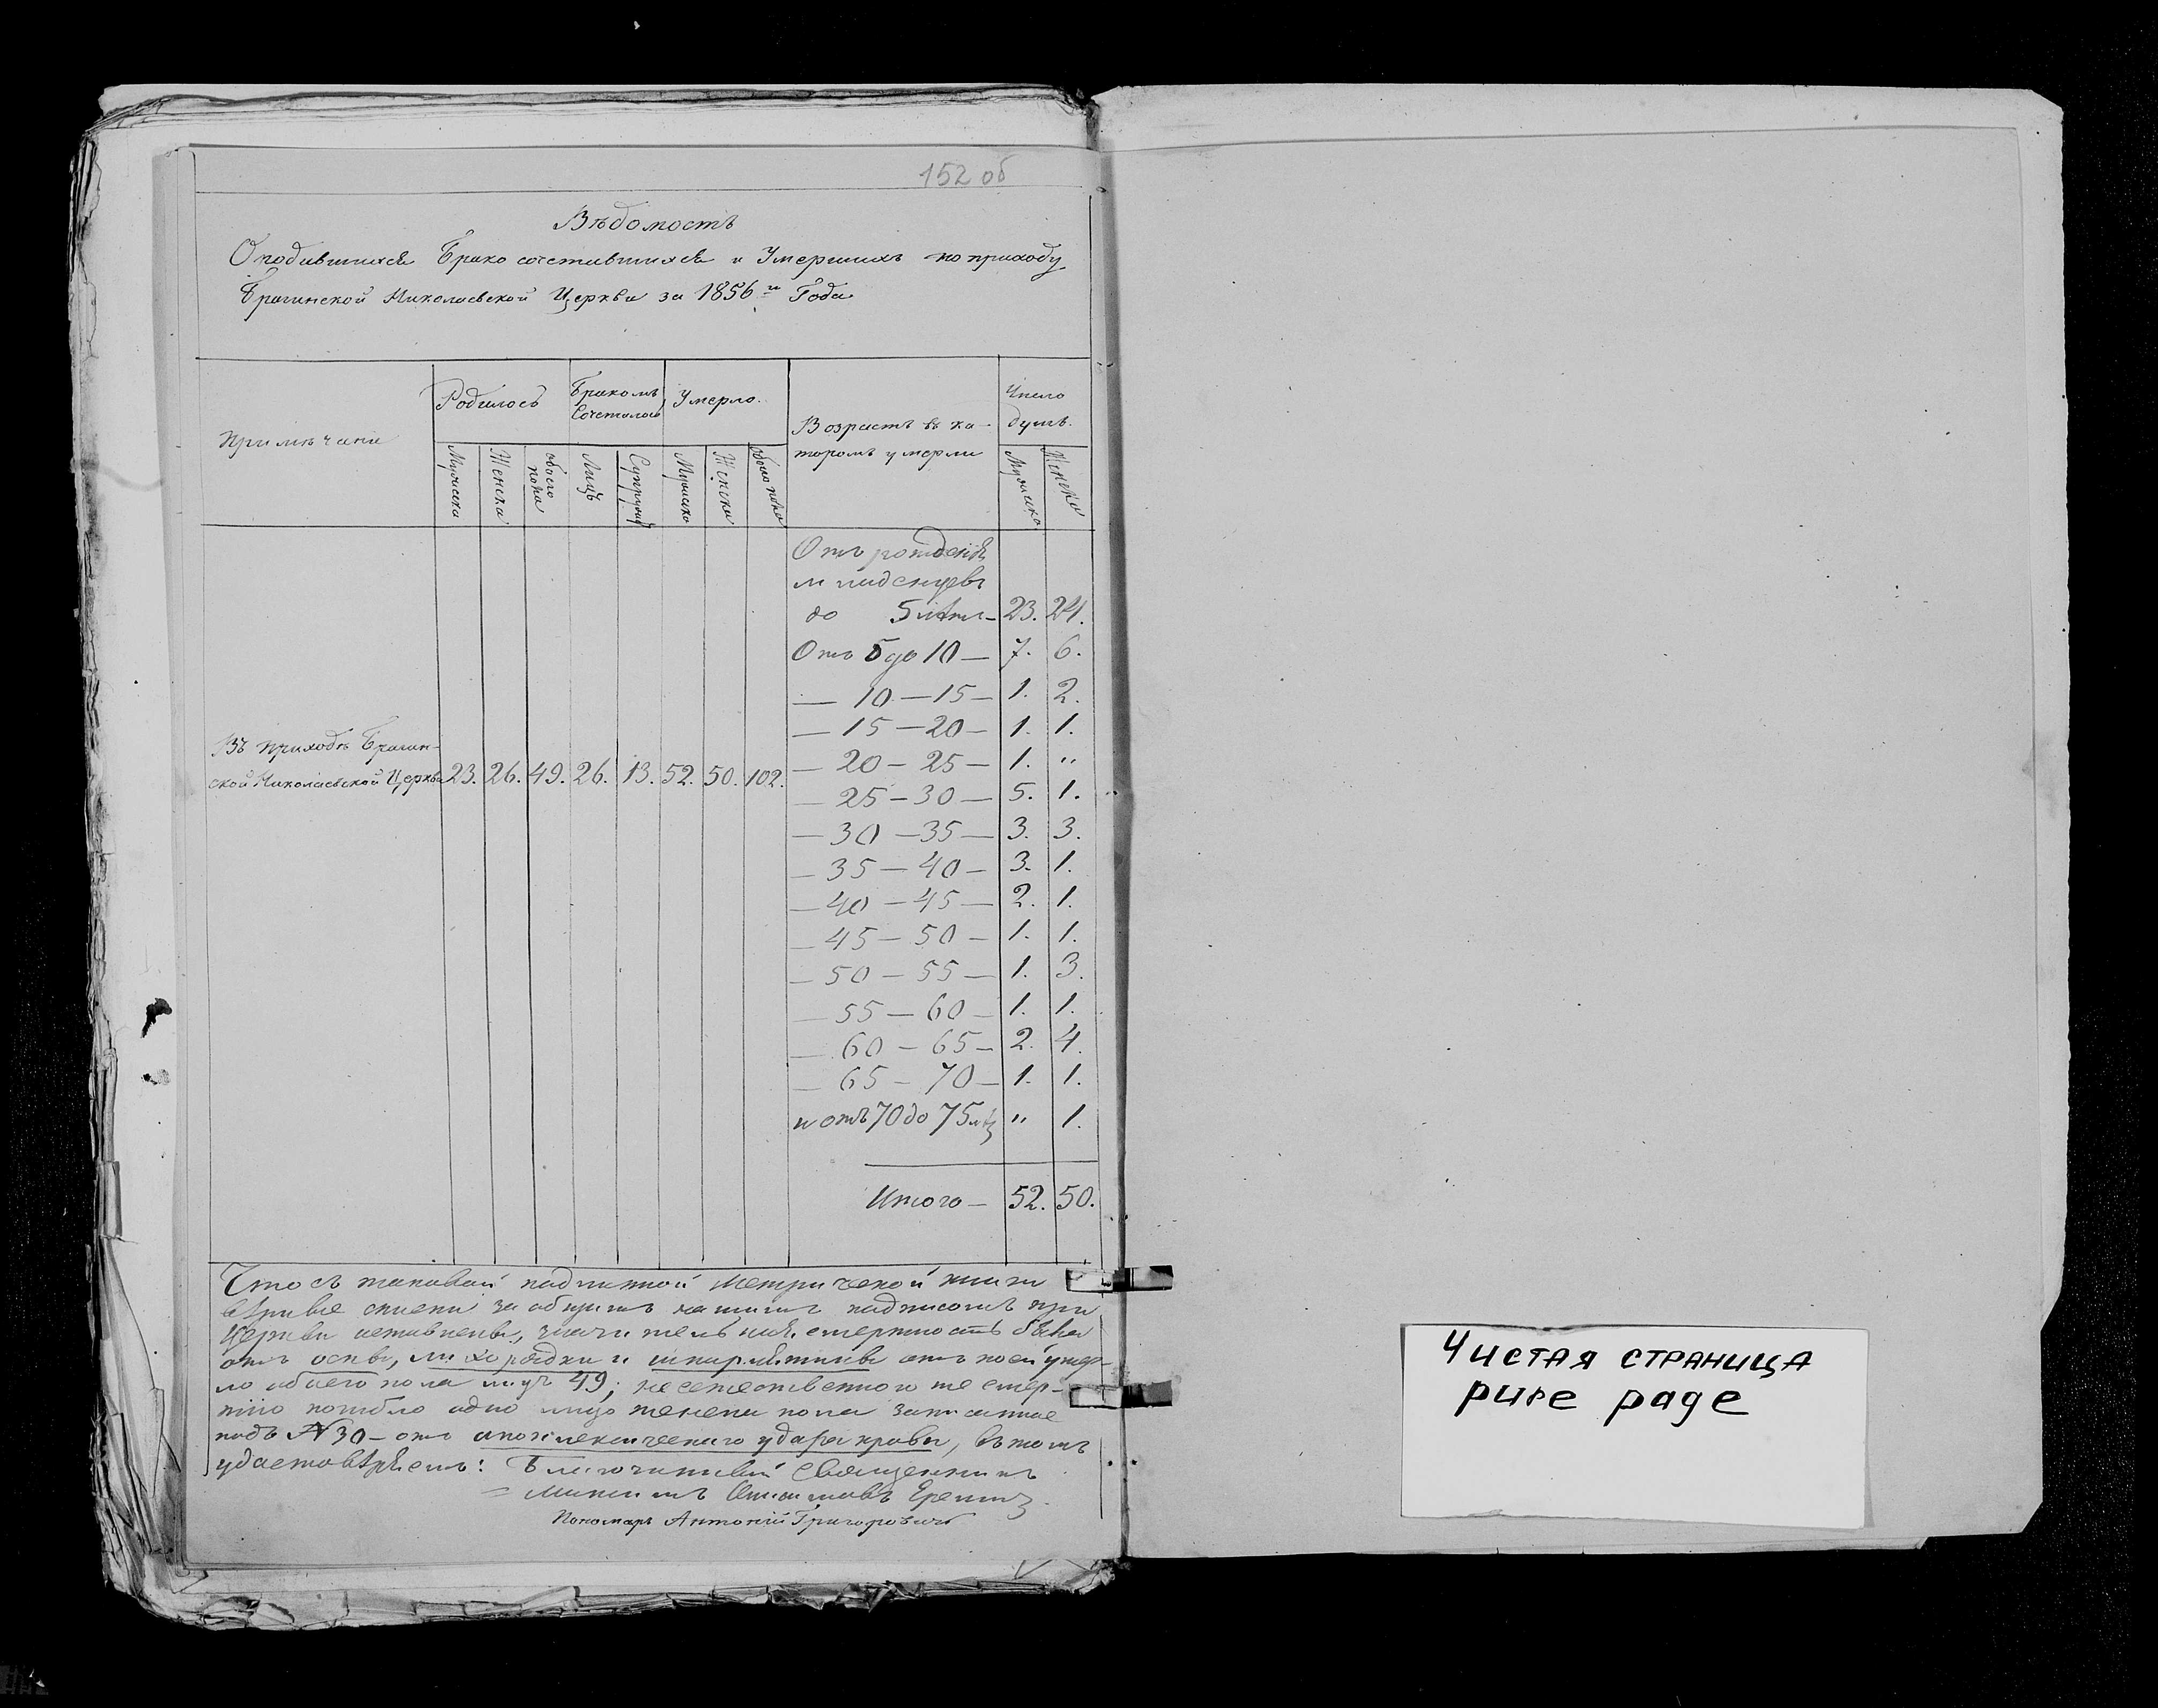 152 об
Вѣдомость
О родившихся Брако сочетавшихся и Умершихъ по приходу
Брагинской Николаевской Церкви за 1856й Года
Примѣчание
Родилось
Бракомъ
Сочеталось
Умерло.
Возрастъ въ ка-
торомъ умерли
Число
душъ.
Мужеска
Женска
обоего пола
Лицъ
Супружествъ
Мужеска
Женска
обоего пола
Мужеска
Женска
Отъ рожденія
младенцевъ
до 5 лѣтъ — 23. 24.
Отъ 5 до 10 — 7. 6.
— 10 — 15 — 1. 2.
— 15 — 20 — 1. 1.
— 20 — 25 — 1. "
— 25 — 30 — 5. 1.
— 30 — 35 — 3. 3.
— 35 — 40 — 3. 1.
— 40 — 45 — 2. 1.
— 45 — 50 — 1. 1.
— 50 — 55 — 1. 3.
— 55 — 60 — 1. 1.
— 60 — 65 — 2. 4.
— 65 — 70 — 1. 1.
и отъ 70 до 75 " 1.
Итого — 52. 50.
Въ приходѣ Брагин-
ской Николаевской Церкви 23. 26. 49. 26. 13. 52. 50. 102.
Что съ таковой подлинной Метрической книги
вѣрные списки за общимъ нашимъ подписомъ при
Церкви оставлены, значительная смертность была
отъ оспы, лихорадки и шкарлятины отъ коей умер-
ло обоего пола лицъ 49; несетественною же смер-
тію погибло одно лицо женска пола записанное
подъ № 30 — отъ апоплексическаго удара крови, въ томъ
удастовѣряемъ: Благочинный Священникъ
Пономарь Антоній Григоровичъ
Чистая страница
pure page